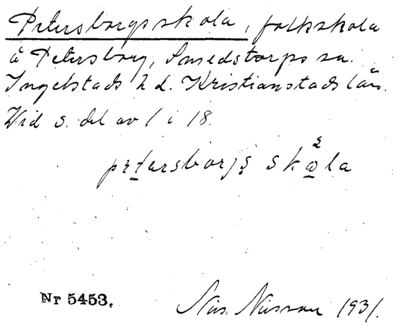 Petersborgsskola, folkskola
å Petersborg, Smedstorps sn.
Ingelstads hd. Kristianstads län.
Vid s. del av 1 i 18.
petarsborjs skola
Nr 5453.
Nils 1931.